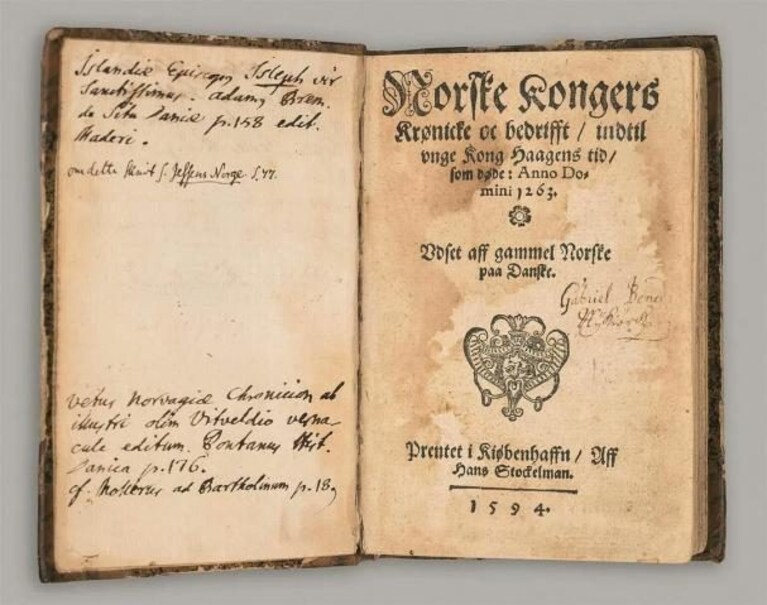 Islandiæ Episcopus Isleph vir
Sanctissimus. adamus Brem.
de Situ Daniæ p.158 edit.
Maderi.
om dette skrift s. Jessens Norge S.77.
Vetus Norvagiæ Chronicion ab
illustri olim Vitveldio verna-
cule editum. Pontanus Hist.
Danica p.176.
cf. Mollerus ad Bartholinum p.18
Norske Kongers
Krønicke oc bedrifft / indtil
vnge Kong Haagens tid /
som døde: Anno Do-
mini 1263.
Vdset aff gammel Norske
paa Danske.
Gabriel
Prentet i Kiøbenhaffn / Aff
Hans Stockelman.
1594.